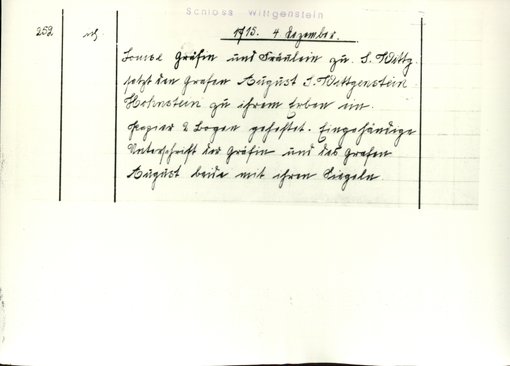 Schloss Wittgenstein
252
1715. 4 Dezember.
Louise Gräfin und Fräulein zu S. Wittg.
setzt den Grafen August S. Wittgenstein
Hohnstein zu ihrem Erben ein.
Papier 2 Bogen geheftet. Eigenhändige
Unterschrift der Gräfin und des Grafen
August beide mit ihren Siegeln